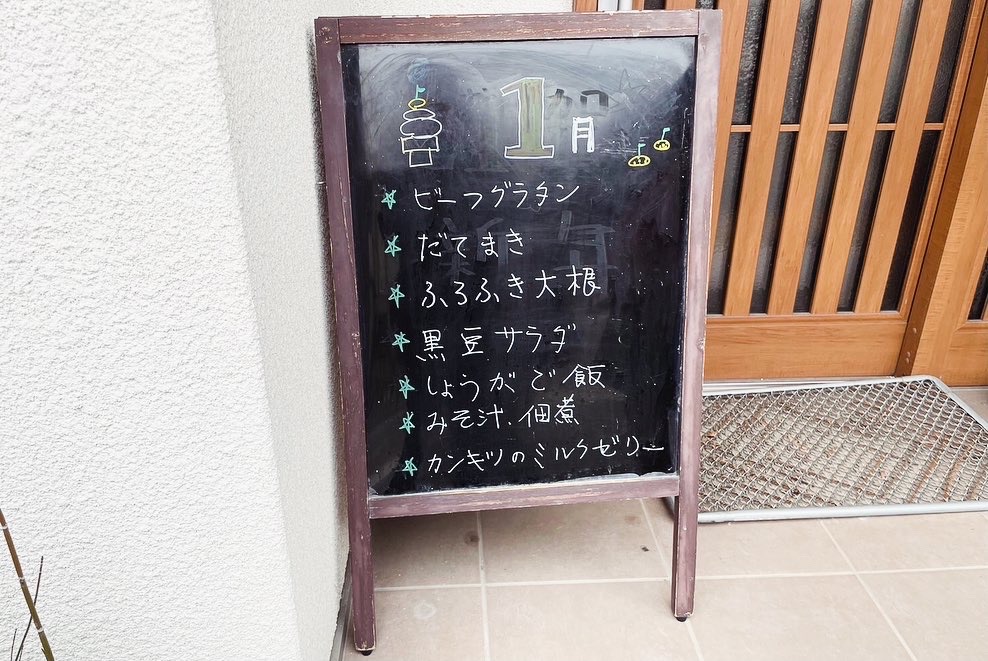 1月
ビーフグラタン
だてまき
ふろふき大根
黒豆サラダ
しょうがご飯
みそ汁、佃煮
カンキツのミルクゼリー